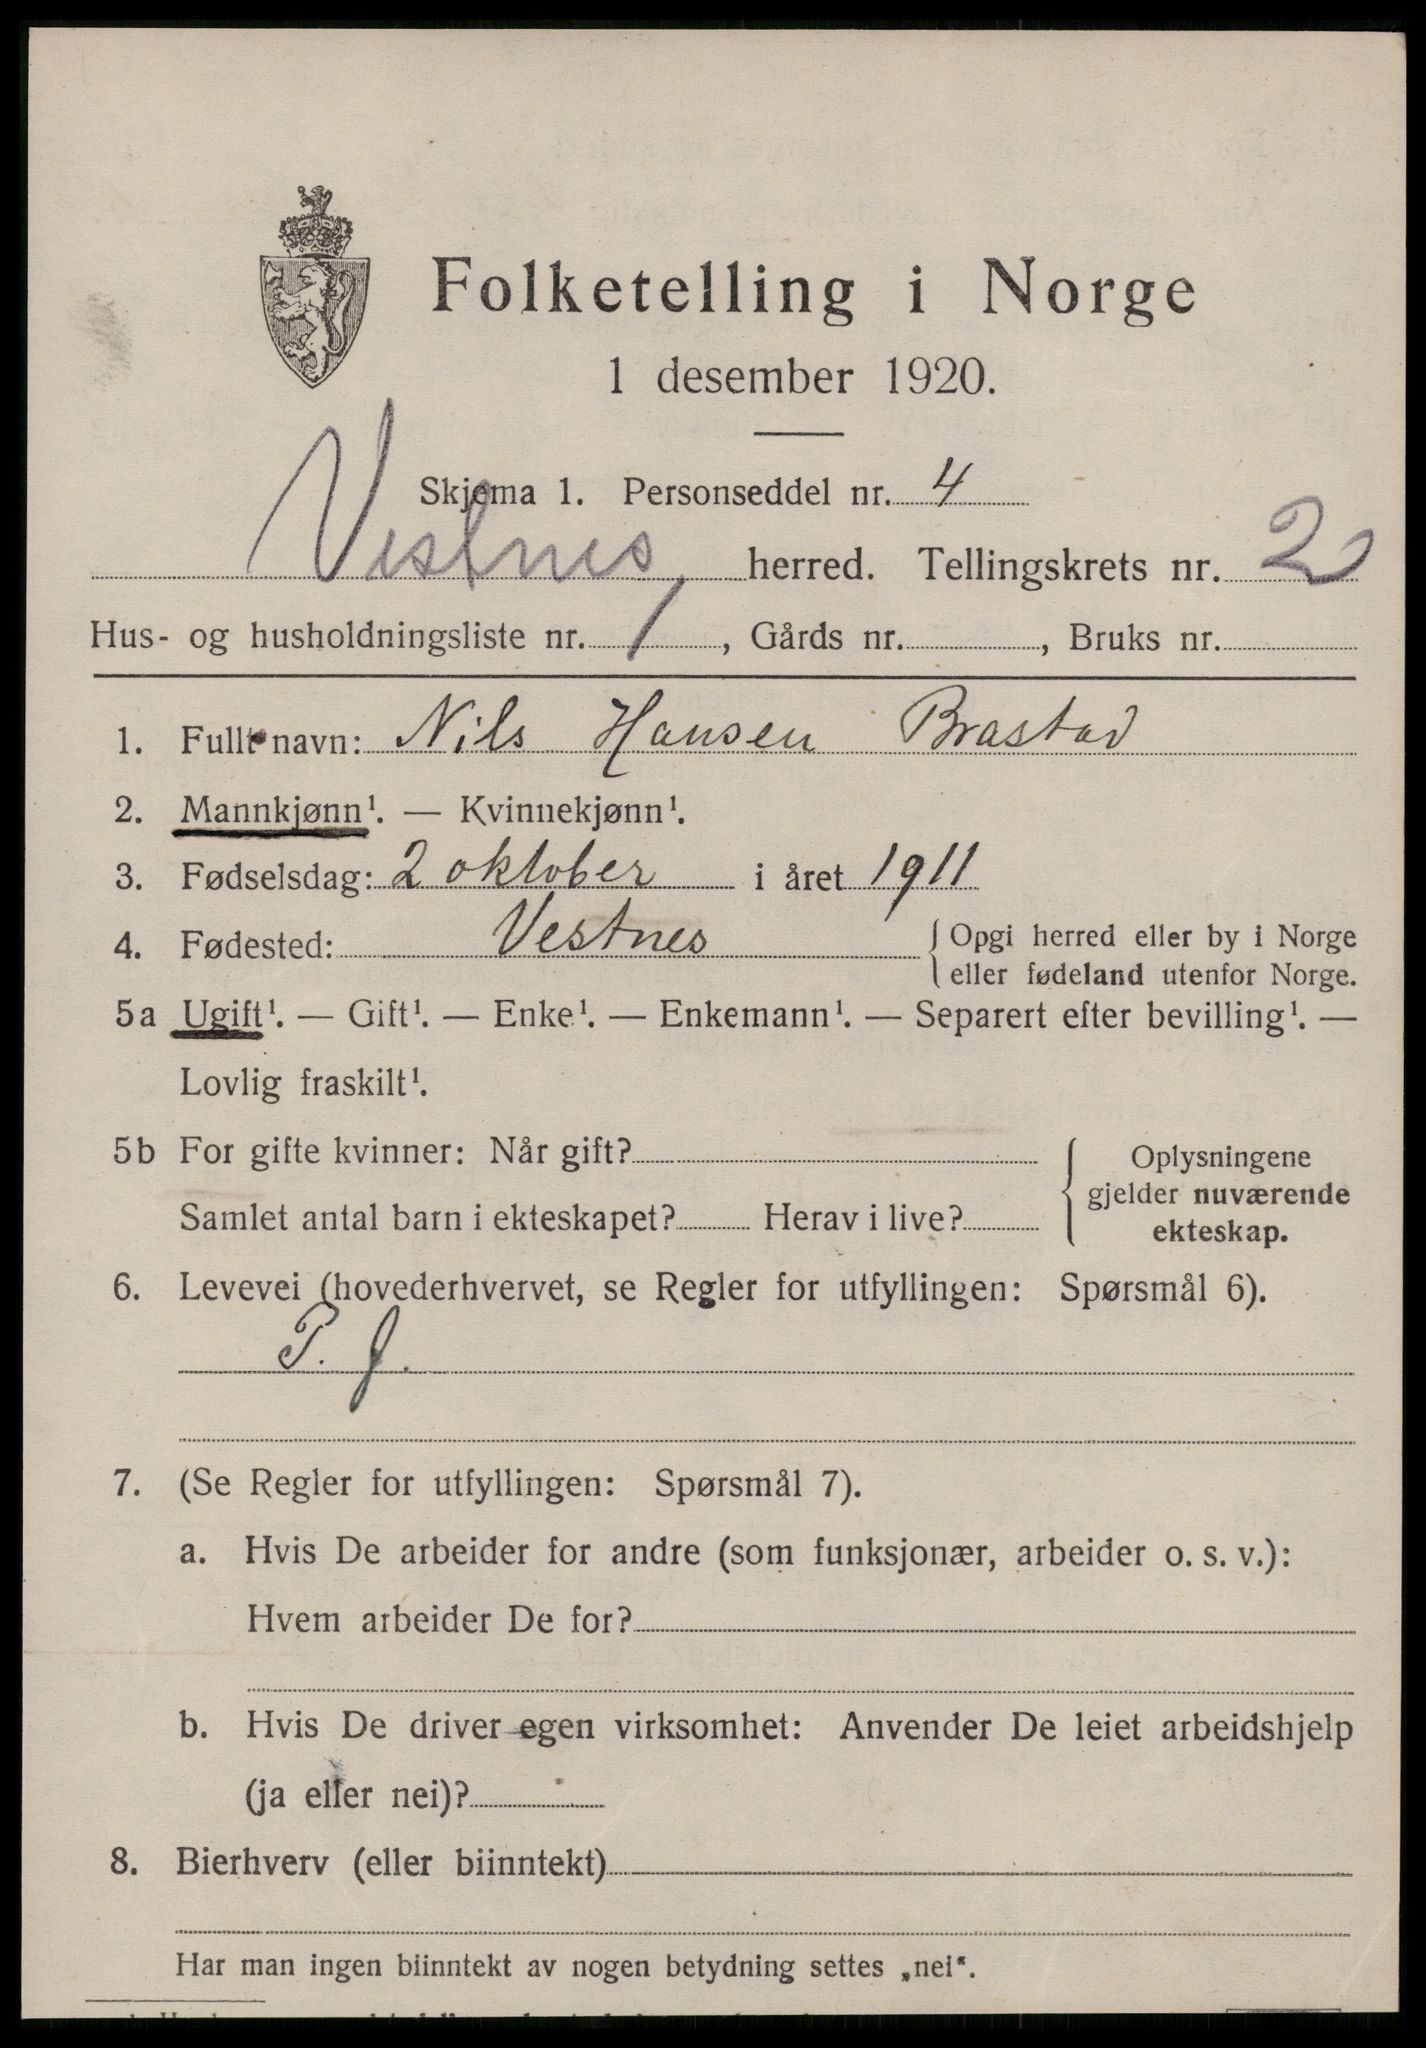 Folketelling i Norge
1 desember 1920.
Skjema 1. Personseddel nr. 4
Vestnes herred. Tellingskrets nr. 2
Hus- og husholdningsliste nr. 1, Gårds nr. , Bruks nr.
1. Fullt navn: Nils Hansen Brastad
2. Mannkjønn¹. — Kvinnekjønn¹.
3. Fødselsdag: 2 oktober i året 1911
4. Fødested: Vestnes { Opgi herred eller by i Norge
eller fødeland utenfor Norge.
5a Ugift¹. — Gift¹. — Enke¹. — Enkemann¹. — Separert efter bevilling¹. —
Lovlig fraskilt¹.
5b For gifte kvinner: Når gift?
Samlet antal barn i ekteskapet? Herav i live?
{ Oplysningene
gjelder nuværende
ekteskap.
6. Levevei (hovederhvervet, se Regler for utfyllingen: Spørsmål 6).
7. (Se Regler for utfyllingen: Spørsmål 7).
a. Hvis De arbeider for andre (som funksjonær, arbeider o. s. v.):
Hvem arbeider De for?
b. Hvis De driver egen virksomhet: Anvender De leiet arbeidshjelp
(ja eller nei)?
8. Bierhverv (eller biinntekt)
Har man ingen biinntekt av nogen betydning settes „nei“.